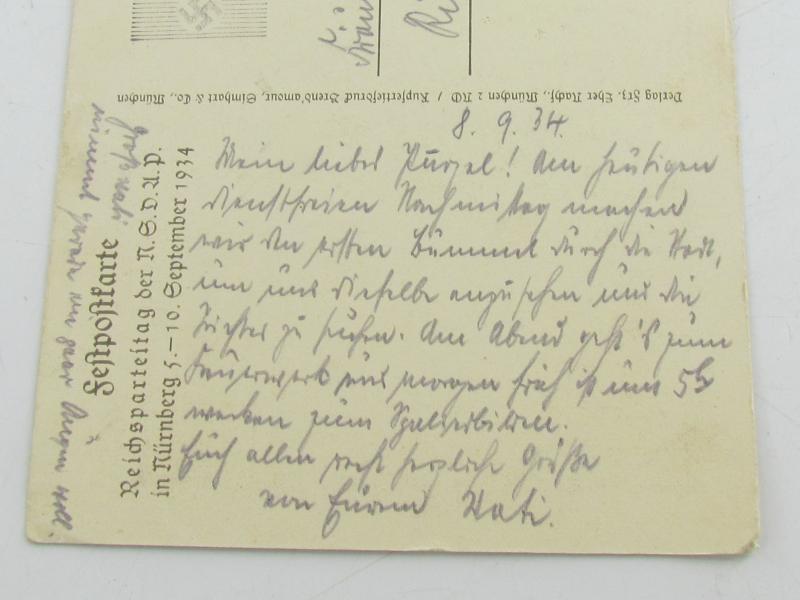 Verlag Frz. Eher Nachf., München 2 NO / Kupfertiefdruck Brend'amour, Simhart & Co., München
Festpostkarte
Reichsparteitag der N.S.D.A.P.
in Nürnberg 5.–10. September 1934
8. 9. 34.
Mein liebes Purzel! Am heutigen
dienstfreien Nachmittag machen
wir den ersten Bummel durch die Stadt,
um uns dieselbe anzusehen und die
zu suchen. Am Abend geht's zum
Feuerwerk und morgen früh ist um 5h
wecken zum Spalierbilden.
Euch allen recht herzliche Grüße
von Eurem Vati.
nimmt gerade ein paar Augen voll.